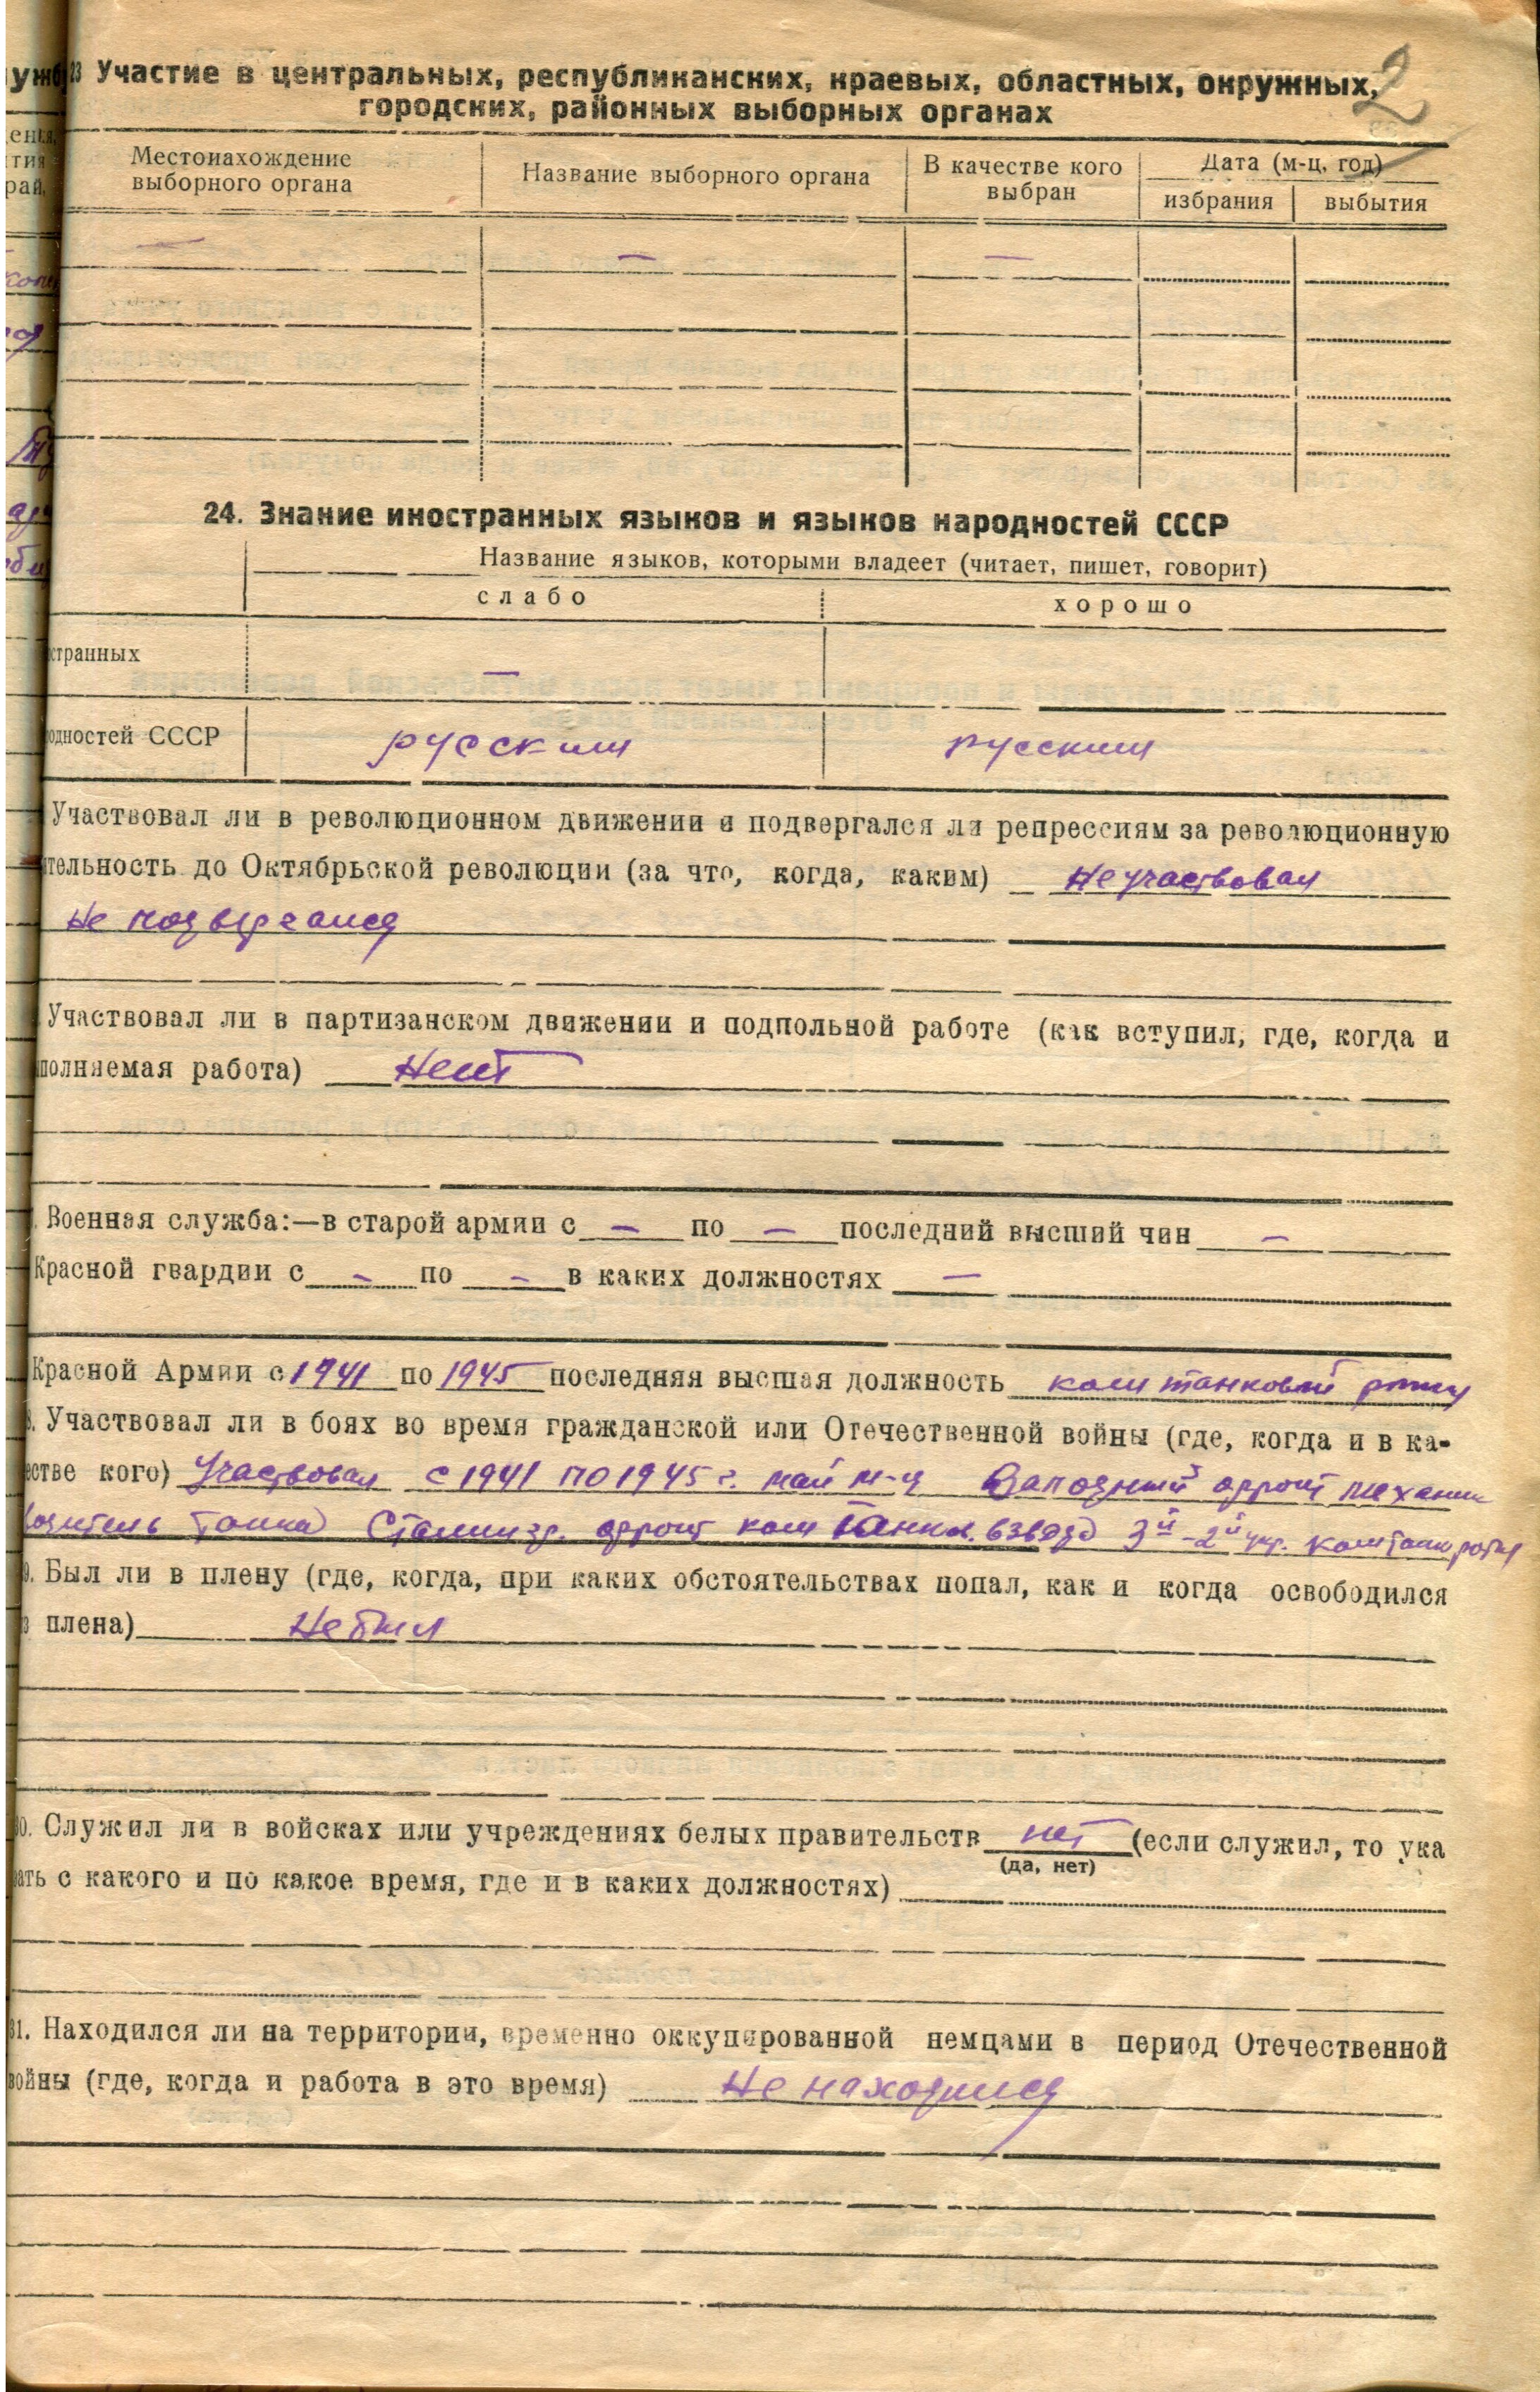 23 Участие в центральных, республиканских, краевых, областных, окружных,
городских, районных выборных органах
2
Местонахождение
выборного органа
Название выборного органа
В качестве кого
выбран
Дата (м-ц, год)
избрания
выбытия
— — —
24. Знание иностранных языков и языков народностей СССР
Название языков, которыми владеет (читает, пишет, говорит)
слабо
хорошо
странных —
одностей СССР русским русским
Участвовал ли в революционном движении и подвергался ли репрессиям за революционную
тельность до Октябрьской революции (за что, когда, каким) Не участвовал
Не подвергался
Участвовал ли в партизанском движении и подпольной работе (как вступил, где, когда и
полняемая работа) Нет
Военная служба:—в старой армии с — по — последний высший чин —
Красной гвардии с — по — в каких должностях —
Красной Армии с 1941 по 1945 последняя высшая должность ком танковой роты
8. Участвовал ли в боях во время гражданской или Отечественной войны (где, когда и в ка-
естве кого) Участвовал с 1941 по 1945 г. май м-ц Западный фронт механик
водитель танка Сталингр. фронт ком танк. взвода 3й-2й укр. ком танк роты
9. Был ли в плену (где, когда, при каких обстоятельствах попал, как и когда освободился
з плена) Не был
30. Служил ли в войсках или учреждениях белых правительств нет (если служил, то ука
(да, нет)
ать с какого и по какое время, где и в каких должностях)
31. Находился ли на территории, временно оккупированной немцами в период Отечественной
войны (где, когда и работа в это время) Не находился